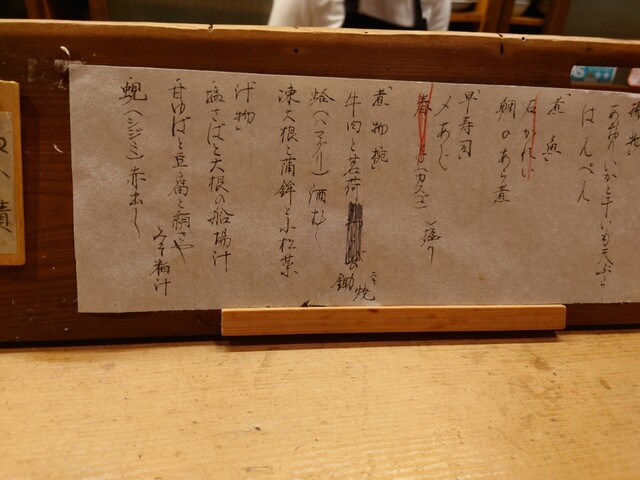 揚物」
あおりいかと干しいも天ぷら
はんぺん
煮魚」
石かれい
鯛のあら煮
早寿司」
〆あじ
春子(カスゴ)握り
煮物椀」
牛肉と茗荷の鋤焼
スキ
蛤(ハマグリ)酒むし
凍大根と蒲鉾と小松菜
汁物」
塩さばと大根の船場汁
甘ゆばと豆腐と絹さや
みそ粕汁
蜆(シジミ)赤出し
漬